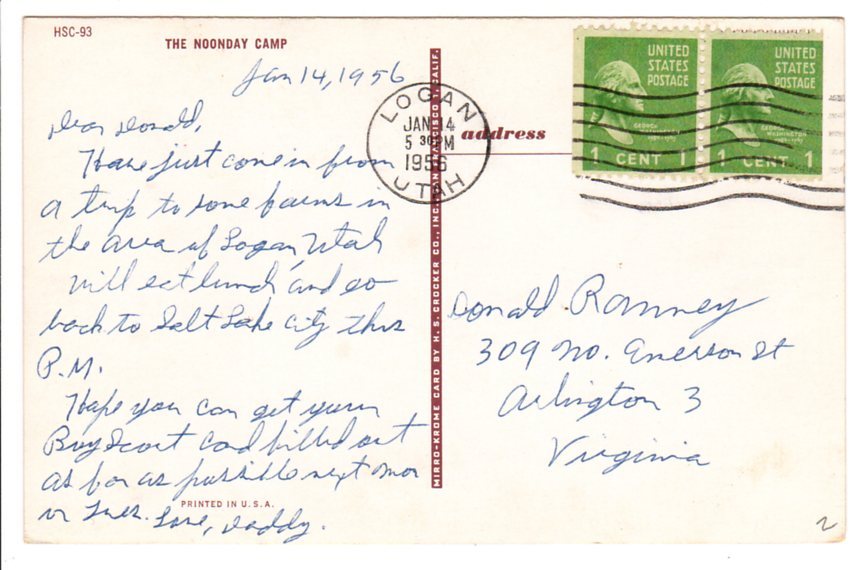 HSC-93
THE NOONDAY CAMP
Jan 14, 1956
Dear Donald,
Have just come in from
a trip to some farms in
the area of Logan, Utah
Will eat lunch and go
back to Salt Lake City this
P.M.
Hope you can get your
Boy Scout card filled out
as far as possible next Mon
or Tues. Love, Daddy.
PRINTED IN U.S.A.
MIRRO-KROME CARD BY H. S. CROCKER CO., INC. SAN FRANCISCO 1, CALIF.
LOGAN
JAN 14
5 30 PM
1956
UTAH
address
UNITED
STATES
POSTAGE
GEORGE
WASHINGTON
1 CENT 1
UNITED
STATES
POSTAGE
GEORGE
WASHINGTON
1 CENT 1
Donald Ranney
309 No. Emerson St
Arlington 3
Virginia
2